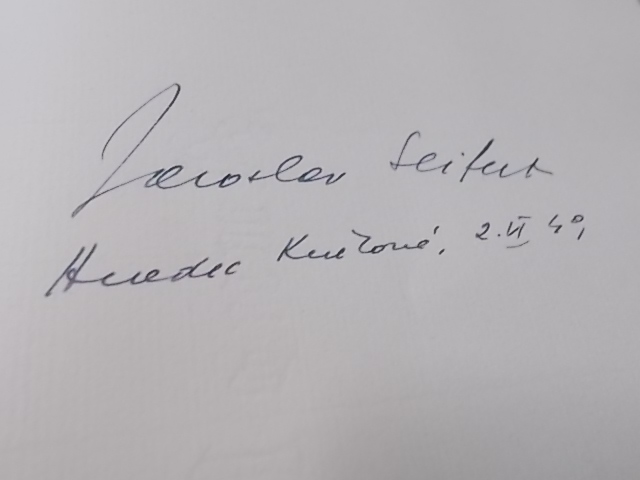 Jaroslav Seifert
Hradec Králové, 2.VI 40,